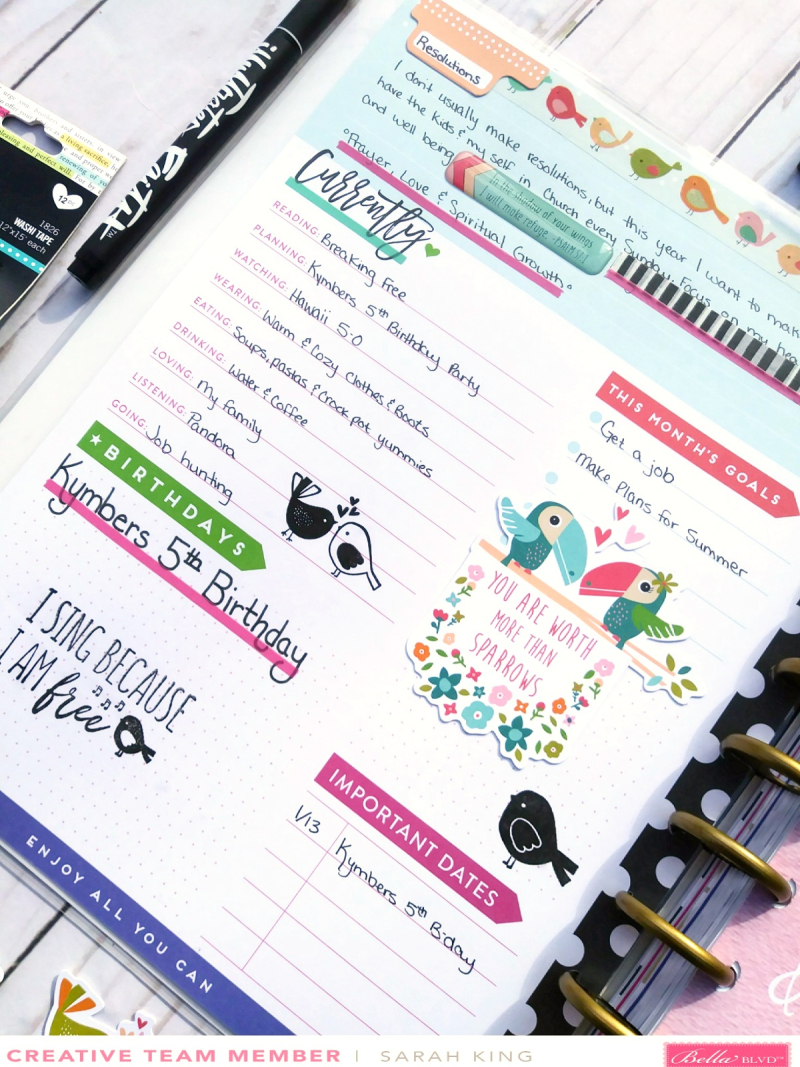 Resolutions
I don't usually make resolutions, but this year I want to make
have the kids & my self in Church every Sunday. Focus on my hea
and well being
°Prayer, Love & Spiritual Growth°
in the shadow of your wings
I will make refuge -PSALM 57:1
Currently
READING: Breaking Free
PLANNING: Kymbers 5th Birthday Party
WATCHING: Hawaii 5-0
WEARING: Warm & Cozy Clothes & Boots
EATING: Soups, pastas & Crock pot yummies
DRINKING: Water & Coffee
LOVING: My family
LISTENING: Pandora
GOING: Job hunting
THIS MONTH'S GOALS
Get a job
Make Plans for Summer
★BIRTHDAYS
Kymbers 5th Birthday
YOU ARE WORTH
MORE THAN
SPARROWS
I SING BECAUSE
I AM free
IMPORTANT DATES
1/13 Kymbers 5th B-day
ENJOY ALL YOU CAN
Illustrated Faith
a living sacrifice,
leaving and perfect will.
renewing of
12pc
1826
WASHI TAPE
12'x15' each
CREATIVE TEAM MEMBER | SARAH KING
Bella BLVD™